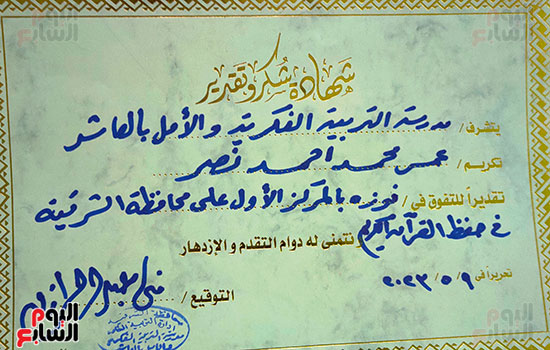 اليوم السابع
اليوم السابع
شهادة شكر وتقدير
يتشرف / مدرسة التربية الفكرية والأمل بالعاشر
تكريم / عمر محمد احمد نصر
تقديراً للتفوق في / فوزه بالمركز الأول على محافظة الشرقية
في حفظ القرآن الكريم ونتمنى له دوام التقدم و الإزدهار
تحريراً في ٩ / ٥ / ٢٠٢٣
التوقيع /
اليوم السابع
اليوم السابع